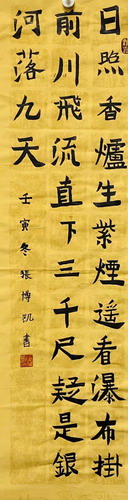 日照香爐生紫煙遙看瀑布掛
前川飛流直下三千尺疑是銀
河落九天
壬寅冬張博凱書